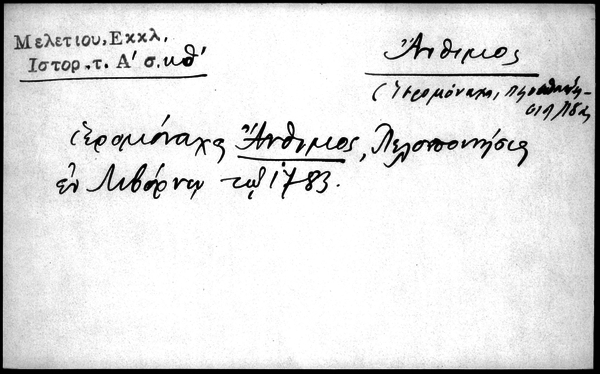 Μελετίου, Εκκλ.
Ιστορ.τ. Α' σ.κθ'
Ἄνθιμος
(ἱερομόναχος,
ἱερομόναχος Ἄνθιμος, Πελοποννήσιος
ἐν Λιβόρνῳ τῷ 1783.